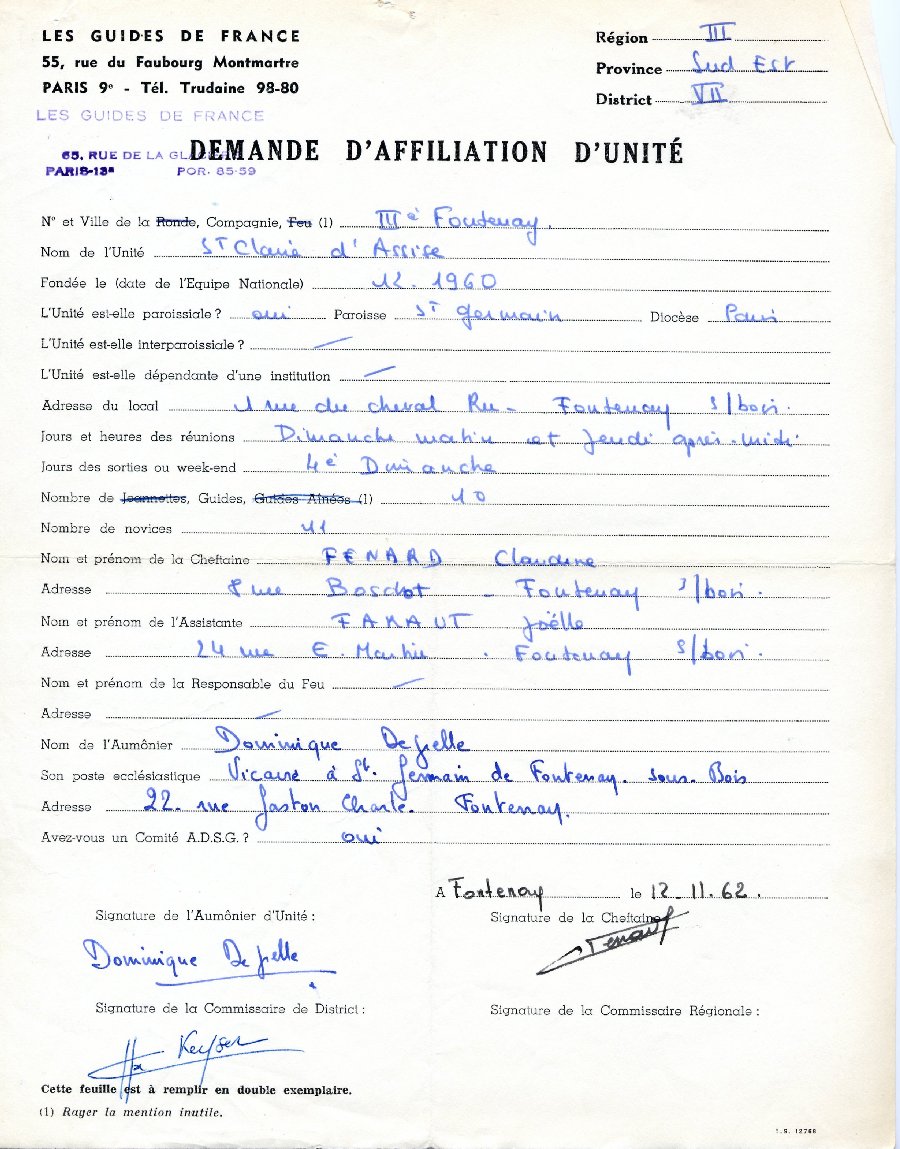 LES GUIDES DE FRANCE
55, rue du Faubourg Montmartre
PARIS 9e - Tél. Trudaine 98-80
Région III
Province Sud Est
District VII
LES GUIDES DE FRANCE
65, RUE DE LA
PARIS-13e POR. 85-59
DEMANDE D'AFFILIATION D'UNITÉ
N° et Ville de la Ronde, Compagnie, Feu (1) IIIè Fontenay.
Nom de l'Unité St Claire d'Assise
Fondée le (date de l'Equipe Nationale) 12.1960
L'Unité est-elle paroissiale ? oui Paroisse St Germain Diocèse Paris
L'Unité est-elle interparoissiale ? —
L'Unité est-elle dépendante d'une institution —
Adresse du local 1 rue du cheval Ru - Fontenay s/bois.
Jours et heures des réunions Dimanche matin et Jeudi après-midi
Jours des sorties ou week-end 4è Dimanche
Nombre de Jeannettes, Guides, Guides Aînées (1) 10
Nombre de novices 11
Nom et prénom de la Cheftaine FENARD Claudine
Adresse 8 rue Boschot - Fontenay s/bois.
Nom et prénom de l'Assistante Joëlle
Adresse 24 rue E. Martin. Fontenay s/bois.
Nom et prénom de la Responsable du Feu —
Adresse —
Nom de l'Aumônier Dominique Depelle
Son poste ecclésiastique Vicaire à St. Germain de Fontenay. sous. Bois
Adresse 22. rue Gaston Charle. Fontenay.
Avez-vous un Comité A.D.S.G. ? oui
A Fontenay le 12.11.62.
Signature de l'Aumônier d'Unité :
Signature de la Cheftaine
Dominique Depelle
Fenard
Signature de la Commissaire de District :
Signature de la Commissaire Régionale :
Keyser
Cette feuille est à remplir en double exemplaire.
(1) Rayer la mention inutile.
I.S. 12768